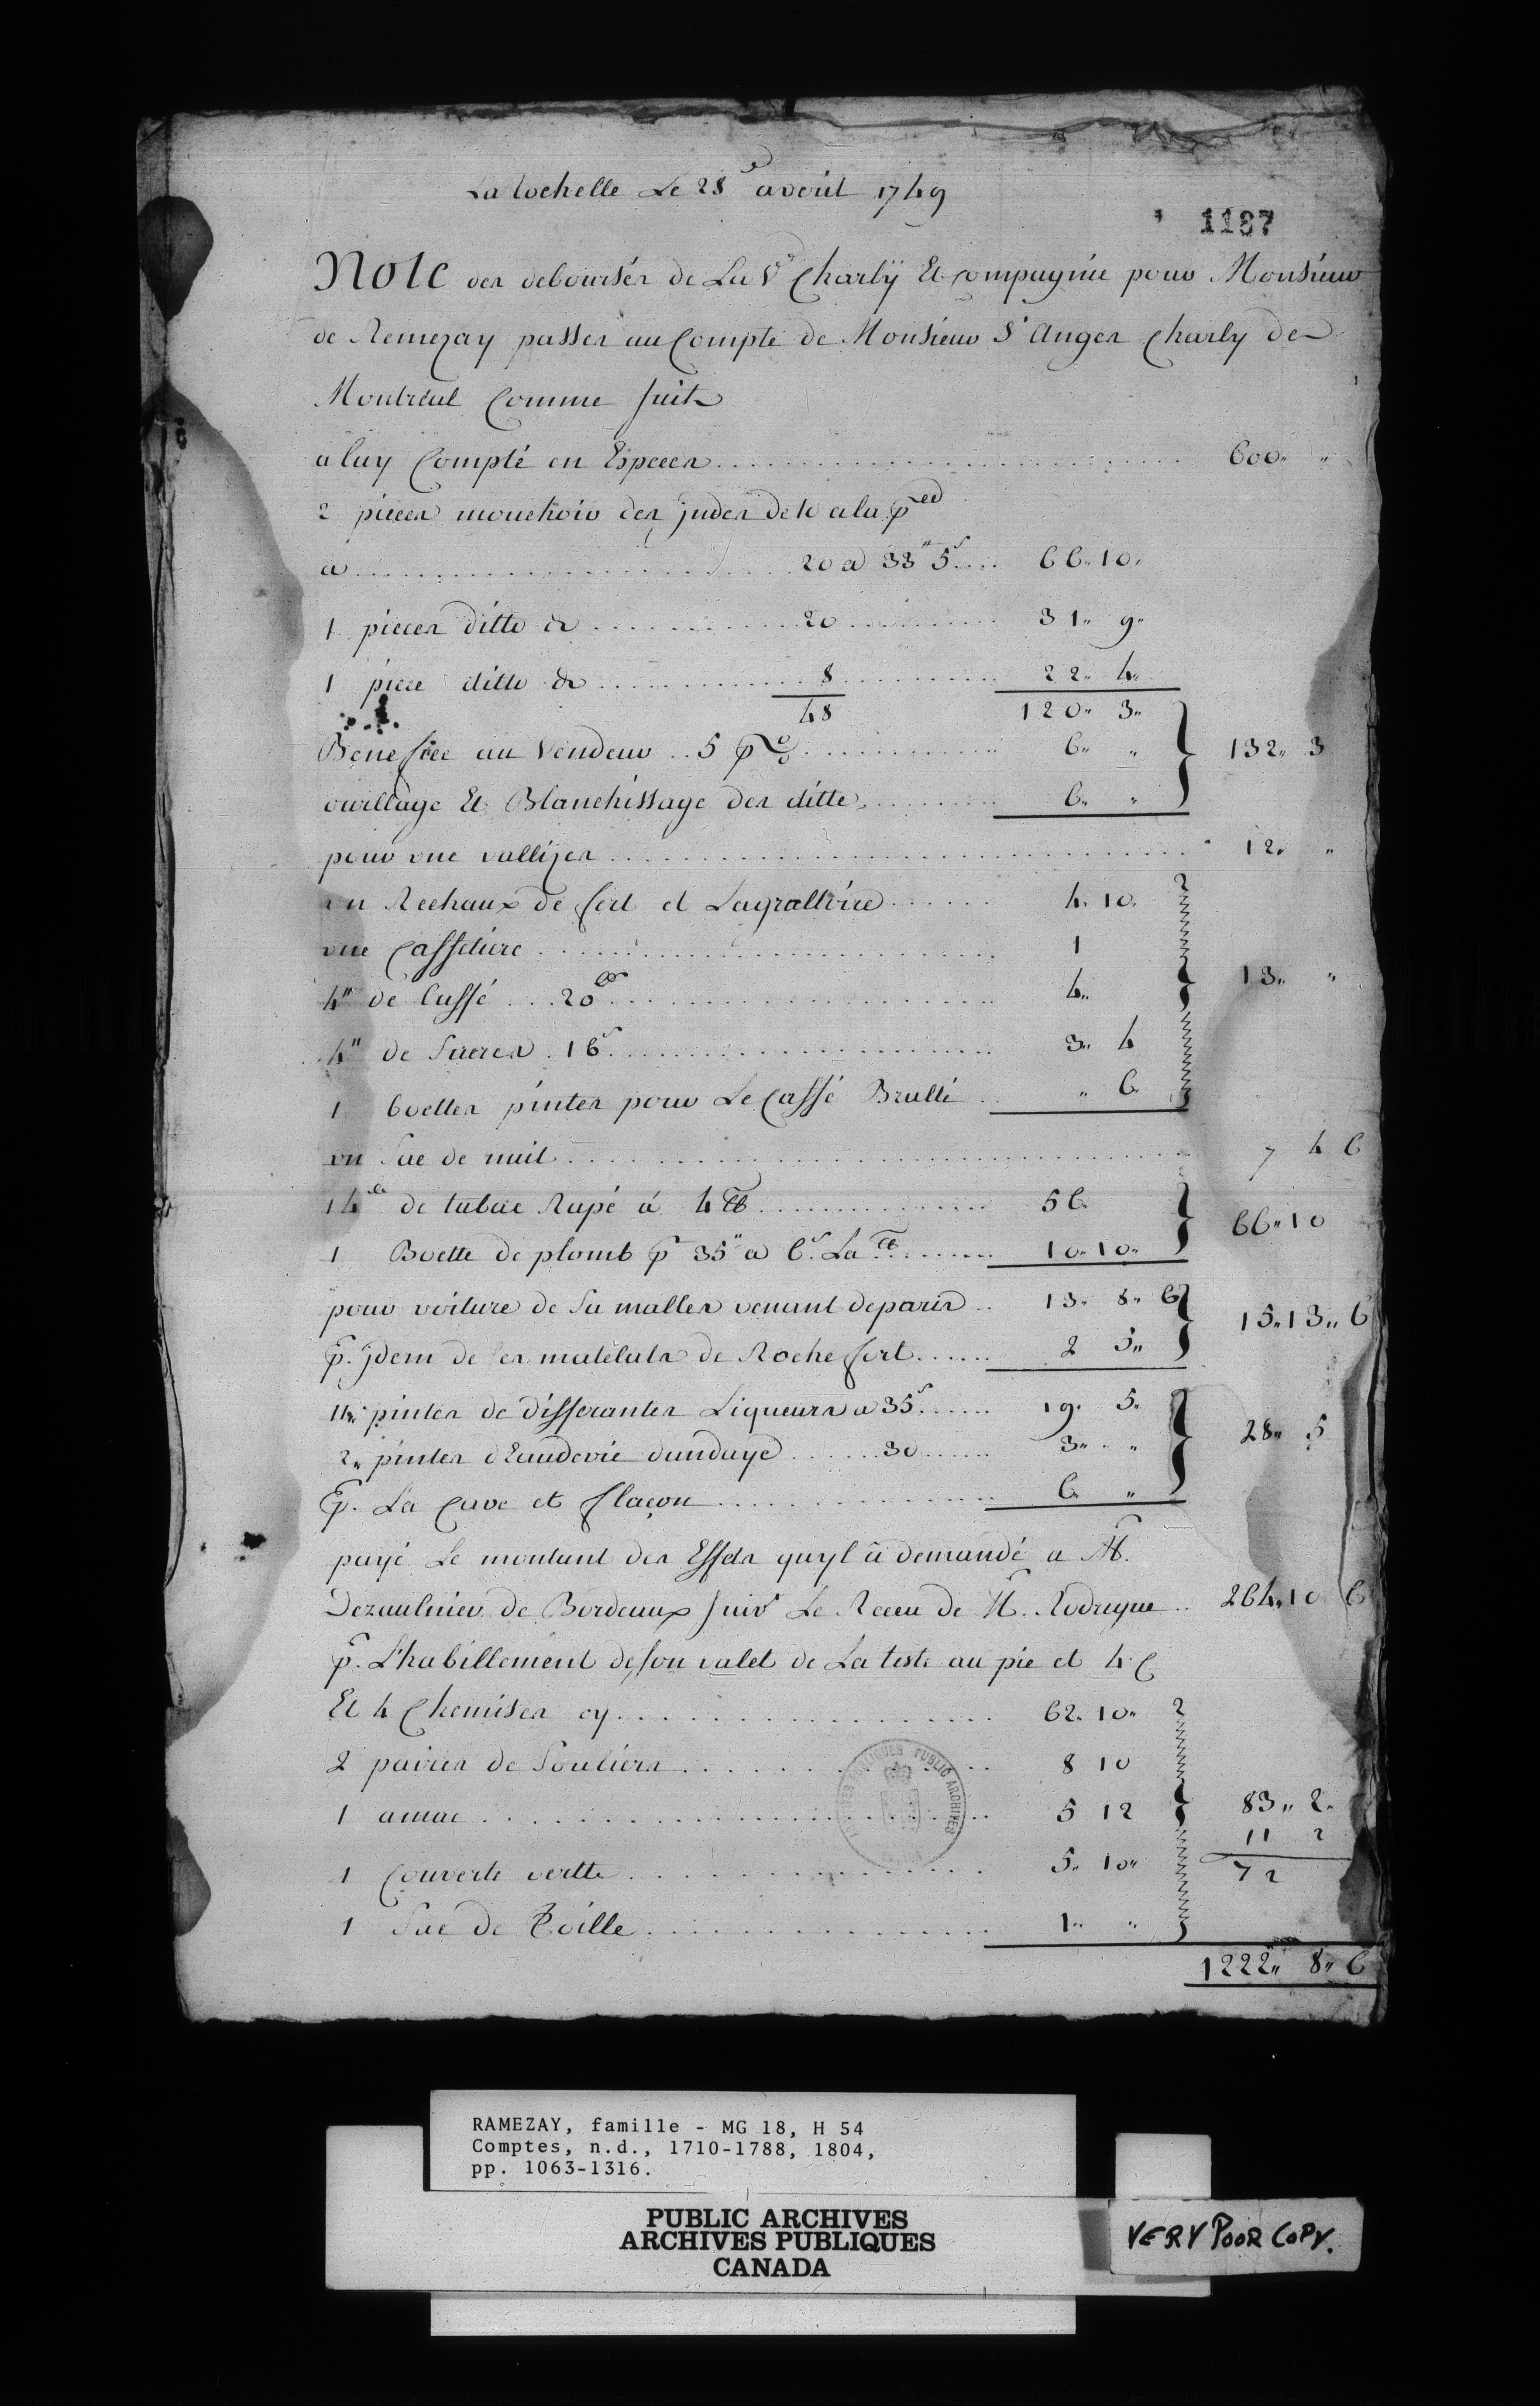 La Rochelle Le 28e averil 1749
1187
Note des debourses de La Ve Charlÿ Et compagnie pour Monsieur
de Remezay passer au Compte de Monsieur St Anges Charly de
Montréal Comme suit
a luy Compté en Especes 600 " "
2 pieces mouchoir des jndes de 10 a la pce
a 20 a 33" 5s 66" 10"
1 pieces ditto de 20 31" 9"
1 piece ditto de 8 22" 4"
48 120" 3"
Benefice au Vendeur 5 p% 6" " 132" 3
ourllage Et Blanchissage des ditte 6" "
pour une vallizes 12" "
un Rechaux de fert et Lagrattoire 4" 10"
une Caffetiere 1
4" de Caffé 20s 4" 13" "
4" de Sucres 16s 3" 4
1 boettes pintes pour Le Caffé Brullé " 6
un Sac de nuit 7 4 6
14lb de tabac Rapé à 4tt 56
66" 10
1 Boette de plomb pt 35" a 6s La tt 10" 10"
pour voiture de Sa malles venant deparis 13" 8" 6
15" 13" 6
p. jdem de ses matelats de Rochefort 2 5"
11 pintes de differantes Liqueurs a 35s 19" 5"
28" 5
2" pintes d'Eaudevie dandaye 30 3" "
p. La Cave et flaçon 6 "
payé Le montant des Effets quyl à demandé a M.
Dezaulnier de Bordeaux suivt Le Receu de M. Rodrigue 264" 10 6
p. L'habillement de son valet de La teste au pié et 4 C
Et 4 Chemises cy 62" 10"
2 paires de Souliers 8 10
1 amac 5 12 83" 2"
11 2
1 Couverte vertte 5" 10" 72
1 Sac de Toille 1" "
1222" 8" 6
PUBLIC ARCHIVES
RAMEZAY, famille - MG 18, H 54
Comptes, n.d., 1710-1788, 1804,
pp. 1063-1316.
PUBLIC ARCHIVES
ARCHIVES PUBLIQUES
CANADA
VERY POOR COPY.